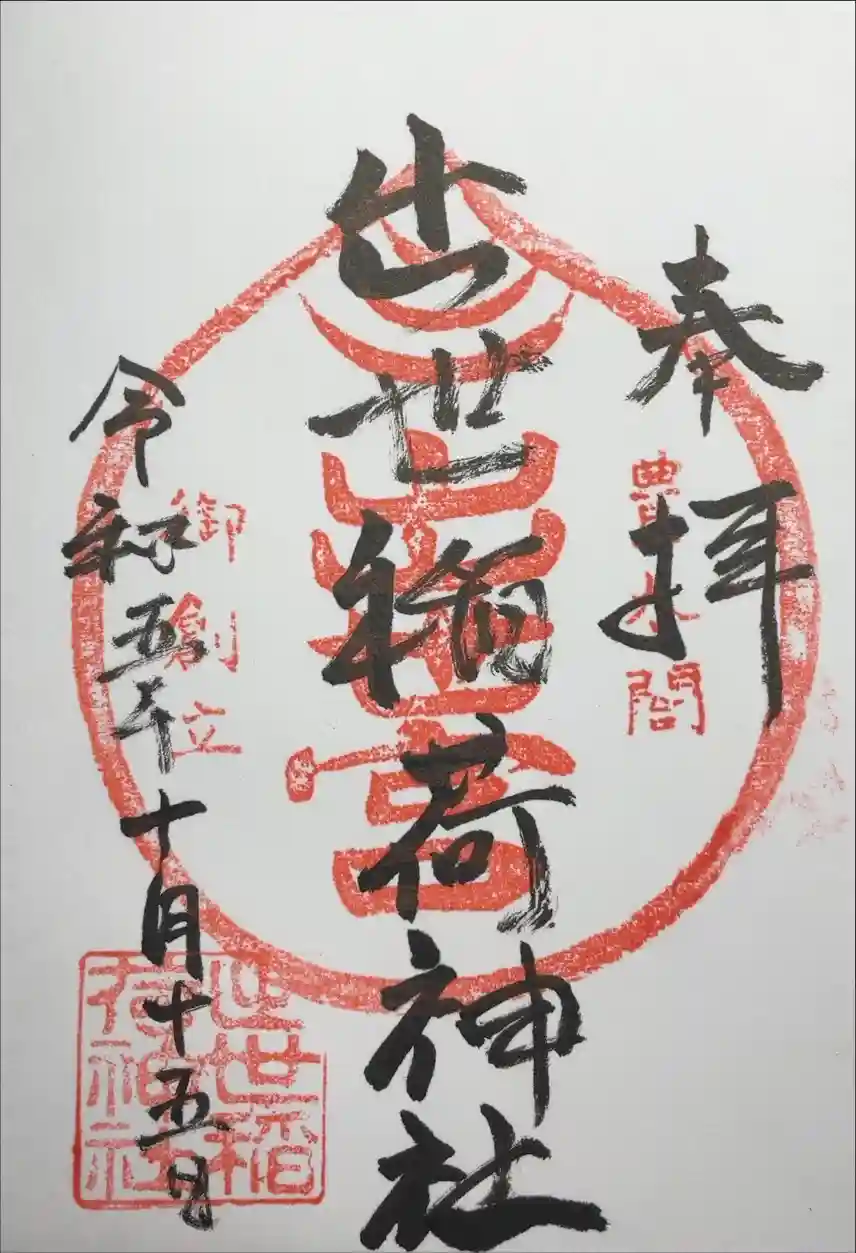 奉拝
豊水問
出世稲荷神社
出世
御創立
令和五年十月十五日
出世稲荷神社